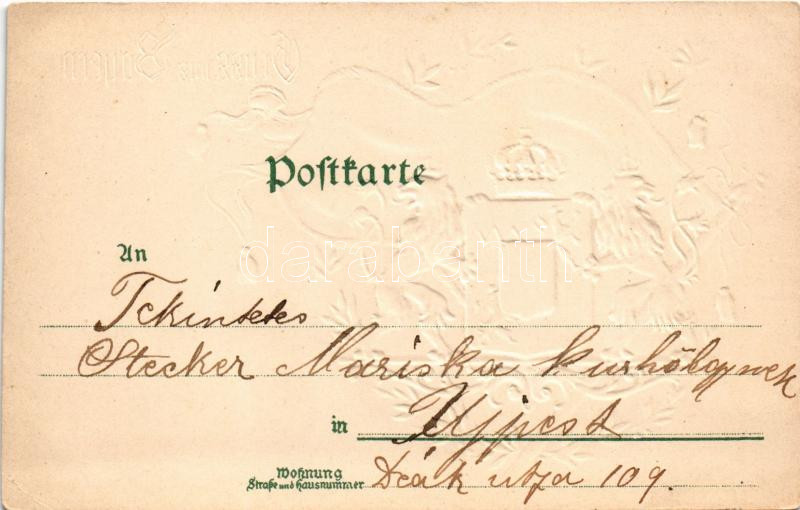 Gruss aus Bayern
Postkarte
An
Tekintetes
Stecker Mariska
in Ujpest
Wohnung
Straße und Hausnummer Deák utza 109.
darabanth